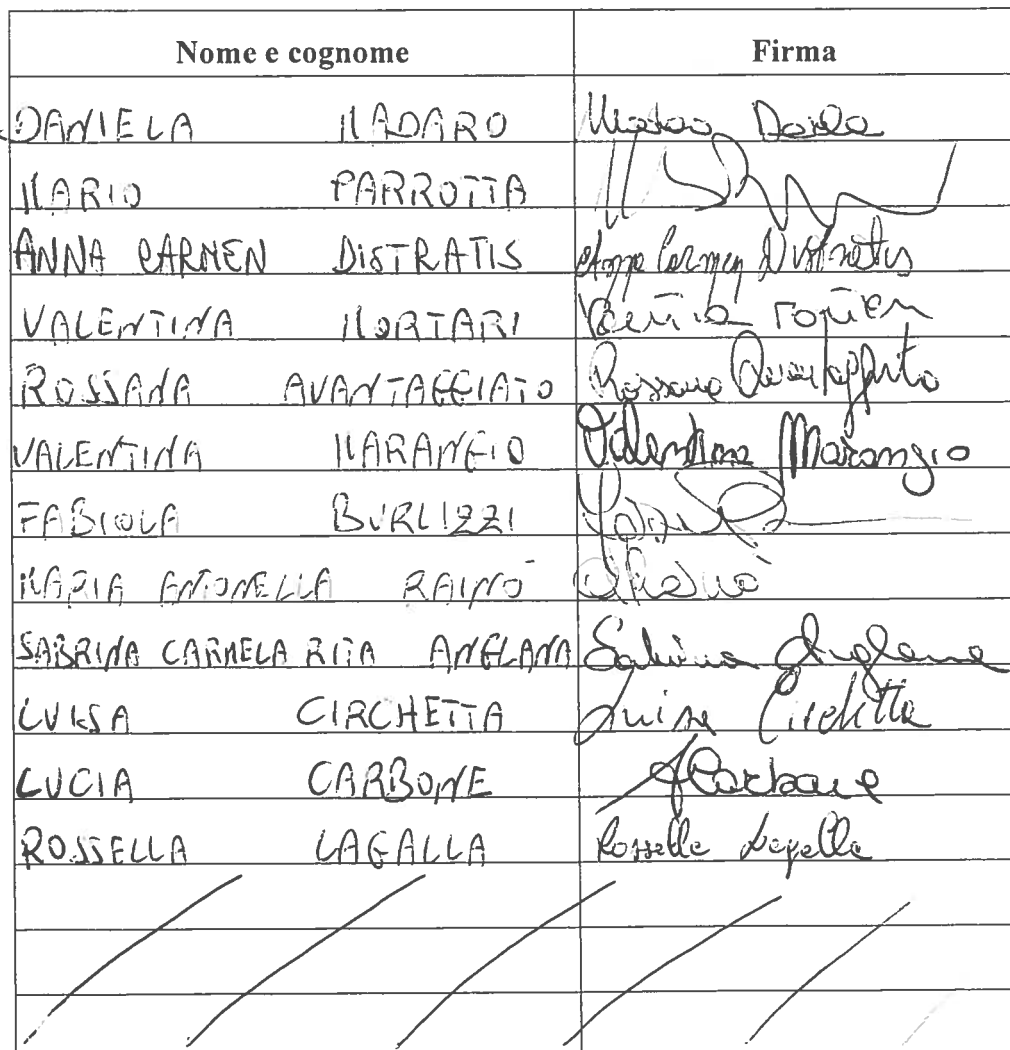 Nome e cognome Firma
DANIELA MADARO
MARIO PARROTTA
ANNA CARMEN DISTRATIS Anna Carmen Distratis
VALENTINA MORTARI
ROSSANA AVANTAGGIATO Rossana Avantaggiato
VALENTINA MARANGIO Valentina Marangio
FABIOLA BURLIZZI
MARIA ANTONELLA RAINÒ
SABRINA CARMELA RITA ANGLANA Sabrina Anglana
LUISA CIRCHETTA Luisa Circhetta
LUCIA CARBONE Carbone
ROSSELLA LAGALLA Rossella Lagalla